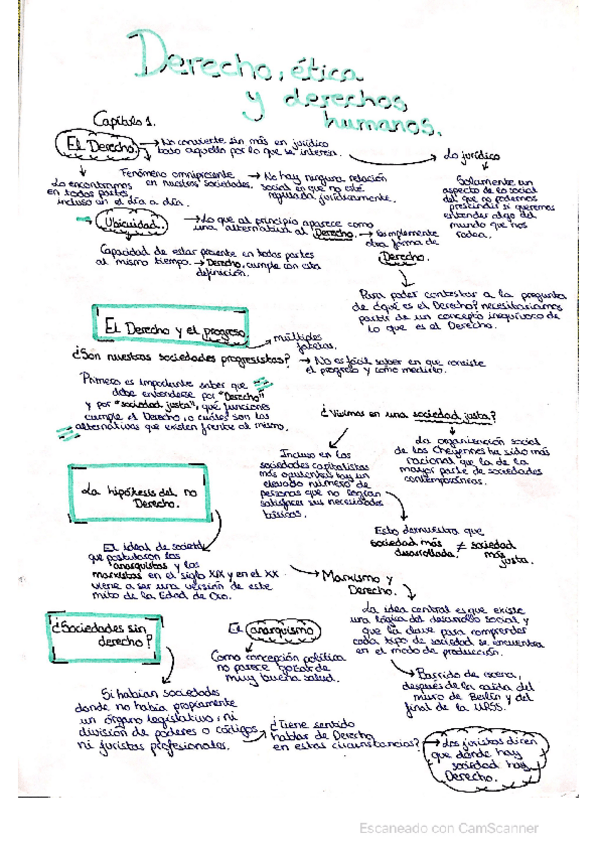 Derecho, ética
y derechos
humanos.
Capítulo 1.
El Derecho
No convierte sin más en jurídico
todo aquello por lo que se interesa.
Lo jurídico
Lo encontramos
en todas partes,
incluso en el día a día.
Fenómeno omnipresente
en nuestras sociedades.
No hay ninguna relación
social en que no esté
regulada jurídicamente.
Solamente un
aspecto de lo social
del que no podemos
prescindir si queremos
entender algo del
mundo que nos
rodea.
Ubicuidad.
Lo que al principio aparece como
una alternativa al Derecho
es simplemente
otra forma de
Derecho.
Capacidad de estar presente en todas partes
al mismo tiempo. → Derecho cumple con esta
definición.
Para poder contestar a la pregunta
de ¿qué es el Derecho? necesitaríamos
partir de un concepto inequívoco de
lo que es el Derecho.
El Derecho y el progreso.
múltiples
facetas.
¿Son nuestras sociedades progresistas?
No es fácil saber en que consiste
el progreso y como medirlo.
Primero es importante saber que
debe entenderse por "Derecho"
y por "sociedad justa", qué funciones
cumple el Derecho, o cuáles son las
alternativas que existen frente al mismo.
¿Vivimos en una sociedad justa?
Incluso en las
sociedades capitalistas
más opulentas hay un
elevado número de
personas que no logran
satisfacer sus necesidades
básicas.
La organización social
de los Cheyennes ha sido más
racional que la de la
mayor parte de sociedades
contemporáneas.
Esto demuestra que
sociedad más desarrollada ≠ sociedad más justa.
La hipótesis del no
Derecho.
El ideal de sociedad
que postularon los
anarquistas y los
marxistas en el siglo XIX y en el XX
viene a ser una versión de este
mito de la Edad de Oro.
Marxismo y
Derecho.
La idea central es que existe
una lógica del desarrollo social y
que la clave para comprender
cada tipo de sociedad se encuentra
en el modo de producción.
Barrido de escena,
después de la caída del
muro de Berlín y del
final de la URSS.
El anarquismo
Como concepción política
no parece gozar de
muy buena salud.
¿Sociedades sin
derecho?
Si habían sociedades
donde no había propiamente
un órgano legislativo, ni
división de poderes o códigos,
ni juristas profesionales.
¿Tiene sentido
hablar de Derecho
en estas circunstancias?
Los juristas dicen
que donde hay
sociedad hay
Derecho.
Escaneado con CamScanner